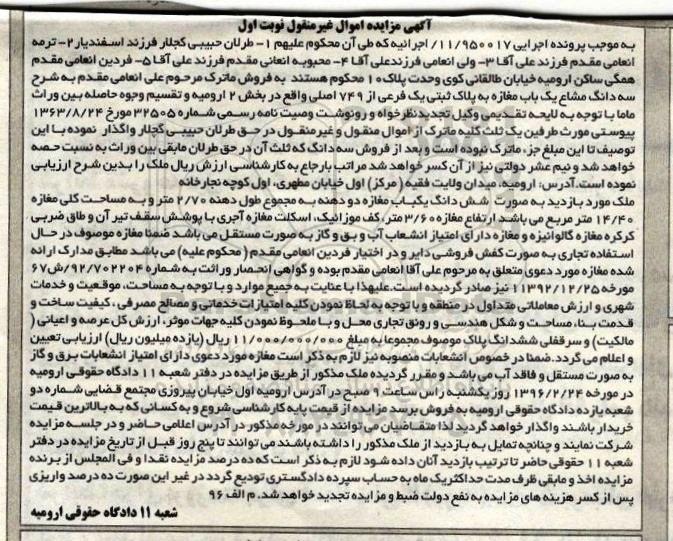 آگهی مزایده اموال غیرمنقول نوبت اول
به موجب پرونده اجرایی ۱۱/۹۵۰۰۱۷/ اجرائیه که طی آن محکوم علیهم ۱- طرلان حبیبی کجلار فرزند اسفندیار ۲- ترمه
انعامی مقدم فرزند علی آقا ۳- ولی انعامی فرزند علی آقا ۴- محبوبه انعانی مقدم فرزند علی آقا ۵- فردین انعامی مقدم
همگی ساکن ارومیه خیابان طالقانی کوی وحدت پلاک ۱۰ محکوم هستند به فروش ماترک مرحوم علی انعامی مقدم به شرح
سه دانگ مشاع یک باب مغازه به پلاک ثبتی یک فرعی از ۷۴۹ اصلی واقع در بخش ۲ ارومیه و تقسیم وجوه حاصله بین وراث
ماما با توجه به لایحه تقدیمی وکیل تجدیدنظرخواه و رونوشت وصیت نامه رسمی شماره ۳۲۵۰۵ مورخ ۱۳۶۳/۸/۲۴
پیوستی مورث طرفین یک ثلث کلیه ماترک از اموال منقول و غیرمنقول در حق طرلان حبیبی کجلار واگذار نموده با این
توصیف تا این مبلغ جزء ماترک نبوده است و بعد از فروش سه دانگ که ثلث آن در حق طرلان مابقی بین وراث به نسبت حصه
خواهد شد و نیم عشر دولتی نیز از آن کسر خواهد شد مراتب بارجاع به کارشناسی ارزش ریال ملک را بدین شرح ارزیابی
نموده است.آدرس: ارومیه، میدان ولایت فقیه (مرکز) اول خیابان مطهری، اول کوچه نجارخانه
ملک مورد بازدید به صورت شش دانگ یکباب مغازه دو دهنه به مجموع طول دهنه ۲/۷۰ متر و به مساحت کلی مغازه
۱۴/۴۰ متر مربع می باشد ارتفاع مغازه ۳/۶۰ متر، کف موزائیک، اسکلت مغازه آجری با پوشش سقف تیر آن و طاق ضربی
کرکره مغازه گالوانیزه و مغازه دارای امتیاز انشعاب آب و برق و گاز به صورت مستقل می باشد ضمنا مغازه موصوف در حال
استفاده تجاری به صورت کفش فروشی دایر و در اختیار فردین انعامی مقدم (محکوم علیه) می باشد مطابق مدارک ارائه
شده مغازه مورد دعوی متعلق به مرحوم علی آقا انعامی مقدم بوده و گواهی انحصار وراثت به شماره ۹۲/۷۰۲۲۰۴/ش۶۷
مورخه ۱۱۳۹۲/۱۲/۲۵ نیز صادر گردیده است.علیهذا با عنایت به جمیع موارد و با توجه به مساحت، موقعیت و خدمات
شهری و ارزش معاملاتی متداول در منطقه و با توجه به لحاظ نمودن کلیه امتیازات خدماتی و مصالح مصرفی، کیفیت ساخت و
قدمت بنا، مساحت و شکل هندسی و رونق تجاری محل و با ملحوظ نمودن کلیه جهات موثر، ارزش کل عرصه و اعیانی (
مالکیت) و سرقفلی ششدانگ پلاک موصوف مجموعا به مبلغ ۱۱/۰۰۰/۰۰۰/۰۰۰ ریال (یازده میلیون ریال) ارزیابی تعیین
و اعلام می گردد.ضمنا در خصوص انشعابات منصوبه نیز لازم به ذکر است مغازه مورد دعوی دارای امتیاز انشعابات برق و گاز
به صورت مستقل و فاقد آب می باشد و مقرر گردیده ملک مذکور از طریق مزایده در دفتر شعبه ۱۱ دادگاه حقوقی ارومیه
در مورخه ۱۳۹۶/۲/۲۴ روز یکشنبه راس ساعت ۹ صبح در آدرس ارومیه اول خیابان پیروزی مجتمع قضایی شماره دو
شعبه یازده دادگاه حقوقی ارومیه به فروش برسد مزایده از قیمت پایه کارشناسی شروع و به کسانی که به بالاترین قیمت
خریدار باشند واگذار خواهد گردید لذا متقاضیان می توانند در مورخه مذکور در آدرس اعلامی حاضر و در جلسه مزایده
شرکت نمایند و چنانچه تمایل به بازدید از ملک مذکور را داشته باشند می توانند تا پنج روز قبل از تاریخ مزایده در دفتر
شعبه ۱۱ حقوقی حاضر تا ترتیب بازدید آنان داده شود لازم به ذکر است که ده درصد مزایده نقدا و فی المجلس از برنده
مزایده اخذ و مابقی ظرف مدت حداکثر یک ماه به حساب سپرده دادگستری تودیع گردد در غیر این صورت ده درصد واریزی
پس از کسر هزینه های مزایده به نفع دولت ضبط و مزایده تجدید خواهد شد. م الف ۹۶
شعبه ۱۱ دادگاه حقوقی ارومیه